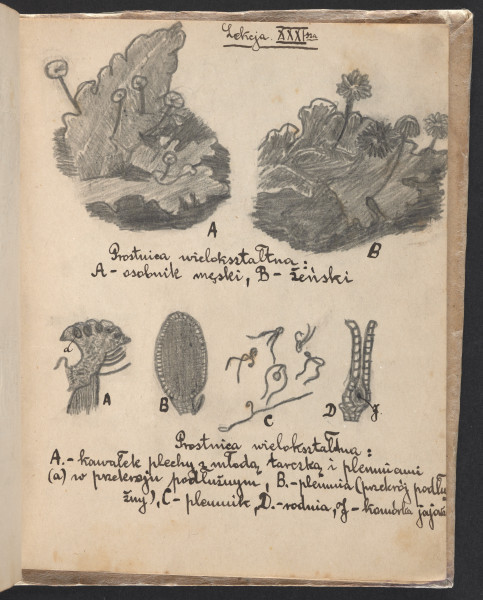 Lekcja XXXI-sza
A
B
Prostnica wielokształtna:
A- osobnik męski, B- żeński
a
A
B
C
D
J.
Prostnica wielokształtna:
A.- kawałek plechy z młodą tarczką i plemniami
(a) w przekroju podłużnym, B.-plemnia (przekrój podłu-
żny), C- plemniki, D.-rodnia, J- komórka jajowa